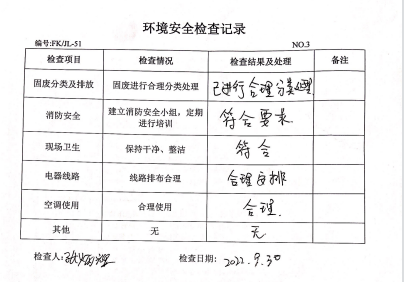 环境安全检查记录
编号:FK/JL-51 NO.3
检查项目 检查情况 检查结果及处理 备注
固废分类及排放 固废进行合理分类处理 已进行合理分类处理
消防安全 建立消防安全小组，定期进行培训 符合要求
现场卫生 保持干净、整洁 符合
电器线路 线路排布合理 合理安排
空调使用 合理使用 合理.
其他 无 无
检查人: 检查日期: 2022.9.30